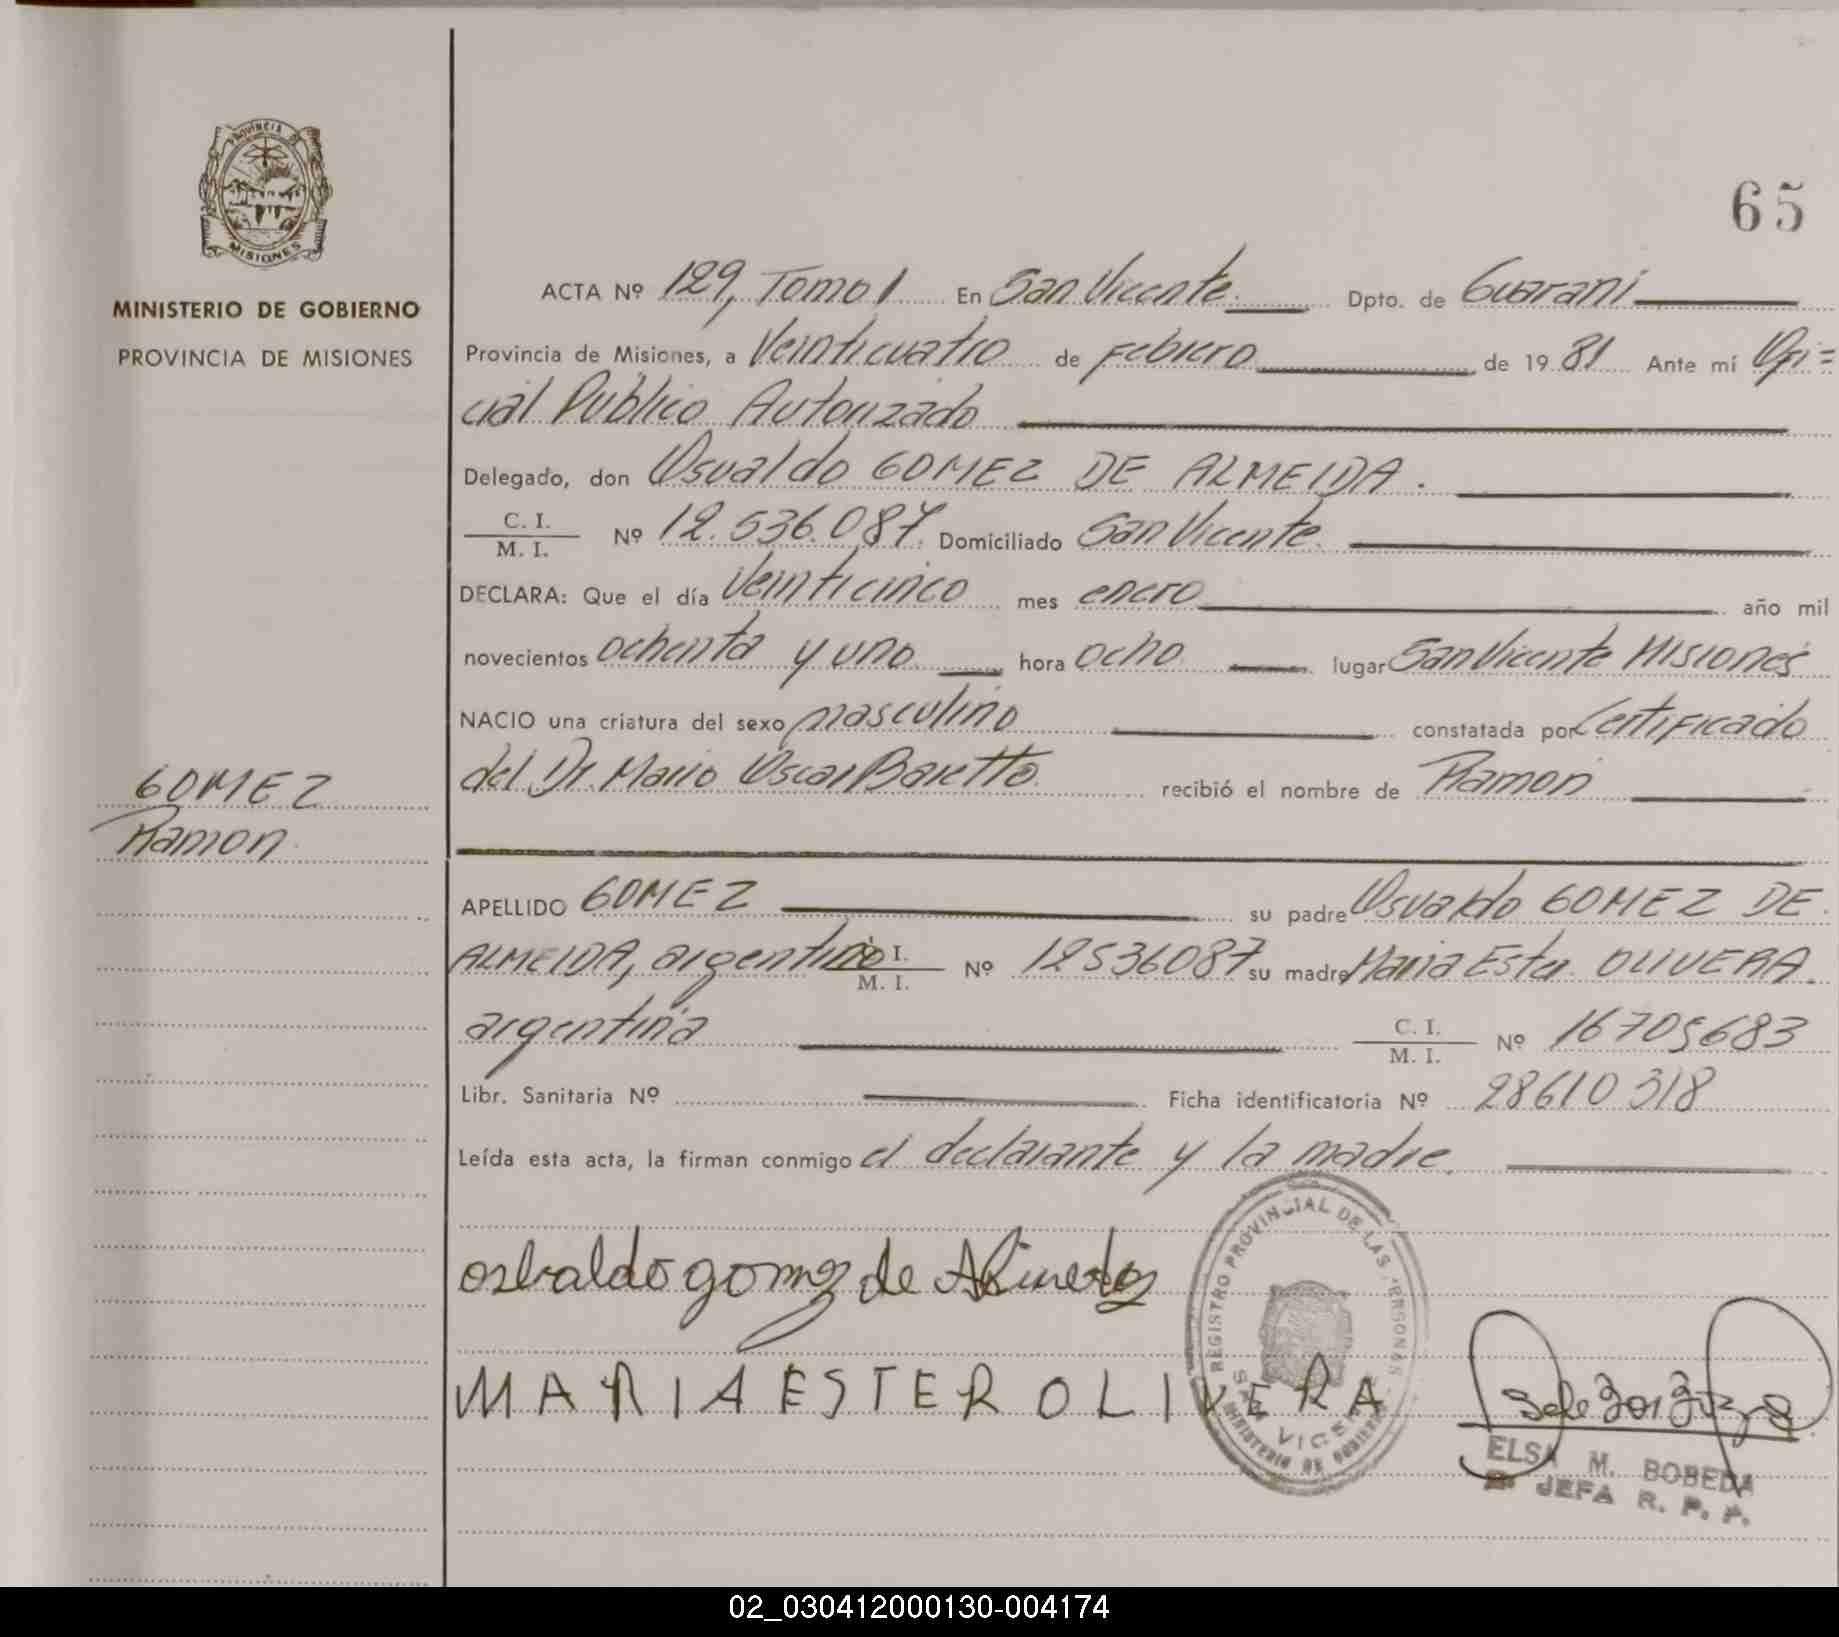 PROVINCIA DE
MISIONES
MINISTERIO DE GOBIERNO
PROVINCIA DE MISIONES
GOMEZ
Ramon
65
ACTA Nº 129, Tomo 1 En San Vicente. Dpto. de Guarani
Provincia de Misiones, a Veinticuatro de Febrero de 1981 Ante mí Ofi=
cial Publico Autorizado
Delegado, don Osvaldo GOMEZ DE ALMEIDA.
C. I. / M. I. Nº 12.536.087. Domiciliado San Vicente.
DECLARA: Que el día Veinticinco mes enero año mil
novecientos ochenta y uno hora ocho lugar San Vicente Misiones
NACIO una criatura del sexo masculino constatada por Certificado
del Dr. Mario Oscar Baretto. recibió el nombre de Ramon
APELLIDO GOMEZ su padre Osvaldo GOMEZ DE
ALMEIDA, argentino C. I. / M. I. Nº 12536087 su madre Maria Ester OLIVERA.
argentina C. I. / M. I. Nº 16705683
Libr. Sanitaria Nº Ficha identificatoria Nº 28610318
Leída esta acta, la firman conmigo el declarante y la madre.
osbaldo gomez de
MARIA ESTER OLIVERA
REGISTRO PROVINCIAL DE LAS PERSONAS
SAN VICENTE
MINISTERIO DE GOBIERNO
ELSA M. BOBEDA
JEFA R. P. P.
02_030412000130-004174